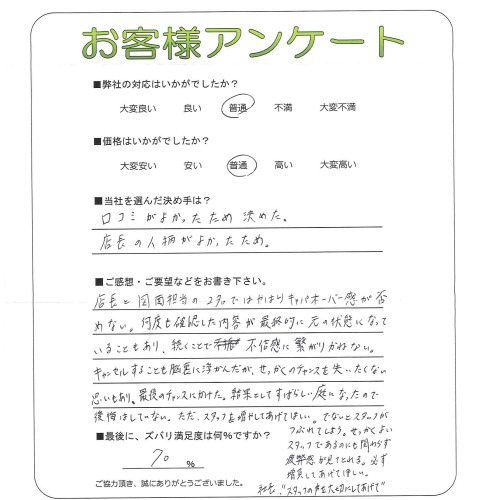 お客様アンケート
■弊社の対応はいかがでしたか？
大変良い 良い 普通 不満 大変不満
■価格はいかがでしたか？
大変安い 安い 普通 高い 大変高い
■当社を選んだ決め手は？
口コミがよかったため決めた。
店長の人柄がよかったため。
■ご感想・ご要望などをお書き下さい。
店長と図面担当の2タではやはりキャパオーバー感が否
めない。何度も確認した内容が最終的に元の状態になって
いることもあり、続くことで不信感に繋がりかねない。
キャンセルすることも脳裏に浮かんだが、せっかくのチャンスを失いたくない
思いもあり、最後のチャンスにかけた。結果としてすばらしい庭になったので
後悔はしていない。ただ、スタッフを増やしてあげてほしい。でないとスタッフが
つぶれてしまう。せっかくよい
スタッフであるのにも関わらず
疲弊感が見てとれる。必ず
増員してあげてほしい。
社長、"スタッフの声を大切にしてあげて"
■最後に、ズバリ満足度は何%ですか？
70 %
ご協力頂き、誠にありがとうございました。